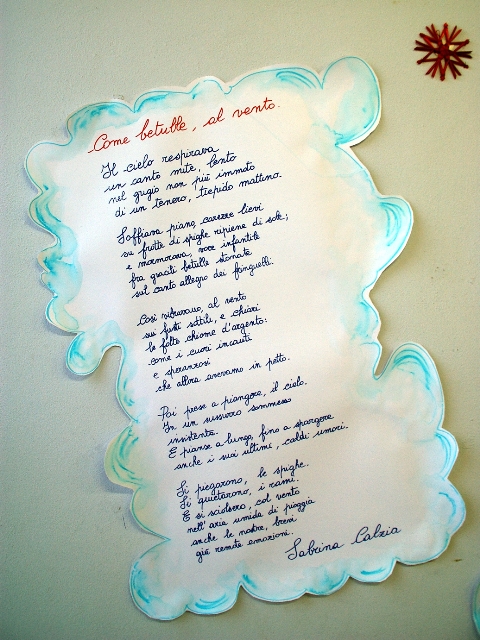 Come betulle, al vento.
Il cielo respirava
un canto mite, lento
nel grigio non più immoto
di un tenero, tiepido mattino.
Soffiava piano, carezze lievi
su frotte di spighe ripiene di sole;
e mormorava, voce infantile
fra gracili betulle stonate
sul canto allegro dei fringuelli.
Così vibravano, al vento
sui fusti sottili, e chiari
le folte chiome d'argento:
come i cuori incauti
e speranzosi
che allora avevamo in petto.
Poi prese a piangere, il cielo.
In un sussurro sommesso
insistente.
E pianse a lungo, fino a spargere
anche i suoi ultimi, caldi umori.
Si piegarono, le spighe.
Si quietarono, i rami.
E si sciolsero, col vento
nell'aria umida di pioggia
anche le nostre, brevi
già remote emozioni.
Sabrina Calzia